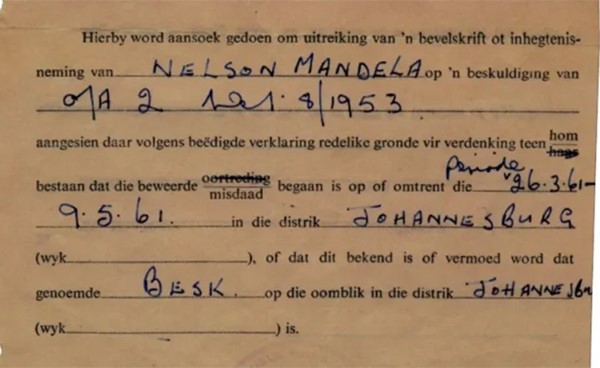 Hierby word aansoek gedoen om uitreiking van 'n bevelskrift ot inhegtenis-
neming van NELSON MANDELA op 'n beskuldiging van
o/A 2 8/1953
aangesien daar volgens beëdigde verklaring redelike gronde vir verdenking teen hom/haar
bestaan dat die beweerde oortreding/misdaad begaan is op of omtrent die periode 26.3.61-
9.5.61. in die distrik JOHANNESBURG
(wyk ), of dat dit bekend is of vermoed word dat
genoemde BESK. op die oomblik in die distrik JOHANNESBU
(wyk ) is.